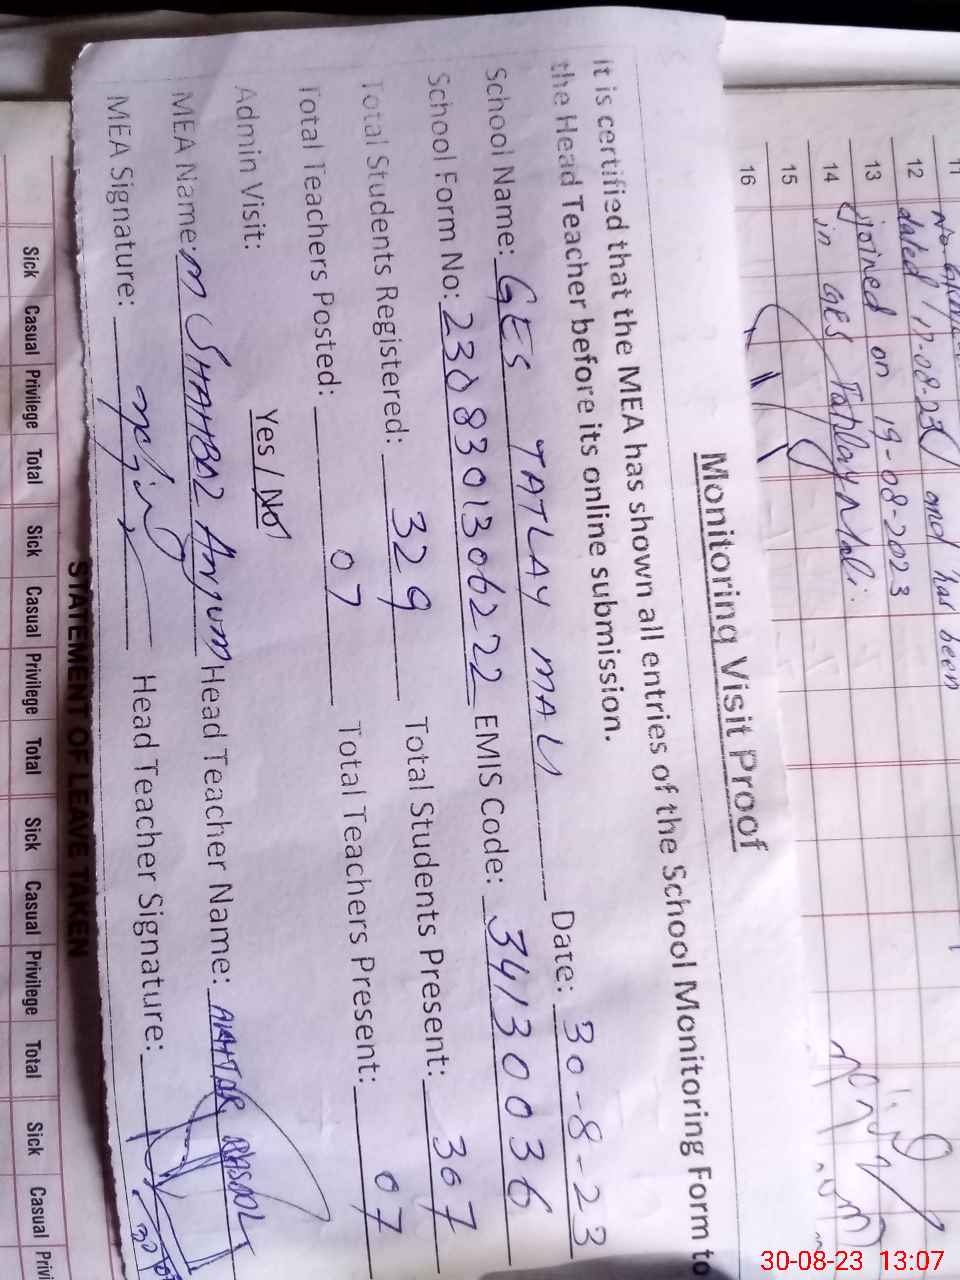 11
12 dated 17-08-23 and has been
13 joined on 19-08-2023
14 in GES Tatlay Mali.
15
16
Monitoring Visit Proof
It is certified that the MEA has shown all entries of the School Monitoring Form to
the Head Teacher before its online submission.
School Name: GES TATLAY MALI Date: 30-8-23
School Form No: 2308301306222 EMIS Code: 34130036
Total Students Registered: 329 Total Students Present: 307
Total Teachers Posted: 07 Total Teachers Present: 07
Admin Visit: Yes / No
MEA Name: M SHAHBAZ Anjum Head Teacher Name: AKHTAR RASOOL
MEA Signature: Head Teacher Signature:
STATEMENT OF LEAVE TAKEN
Sick Casual Privilege Total Sick Casual Privilege Total Sick Casual Privilege Total Sick Casual Privi
Sick Casual Privilege Total Sick Casual Privilege Total Sick Casual Privilege Total Sick Casual Privi
30-08-23 13:07